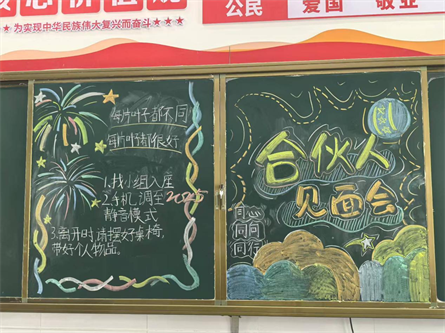 核心价值观
★为实现中华民族伟大复兴而奋斗★★★
公民
爱国
敬业
每片叶子都不同
每片叶子都很好
1.找小组入座
2.手机调至
静音模式
2025
3.离开时,请摆好桌椅,
带好个人物品。
合伙人
见面会
同心
同向
同行